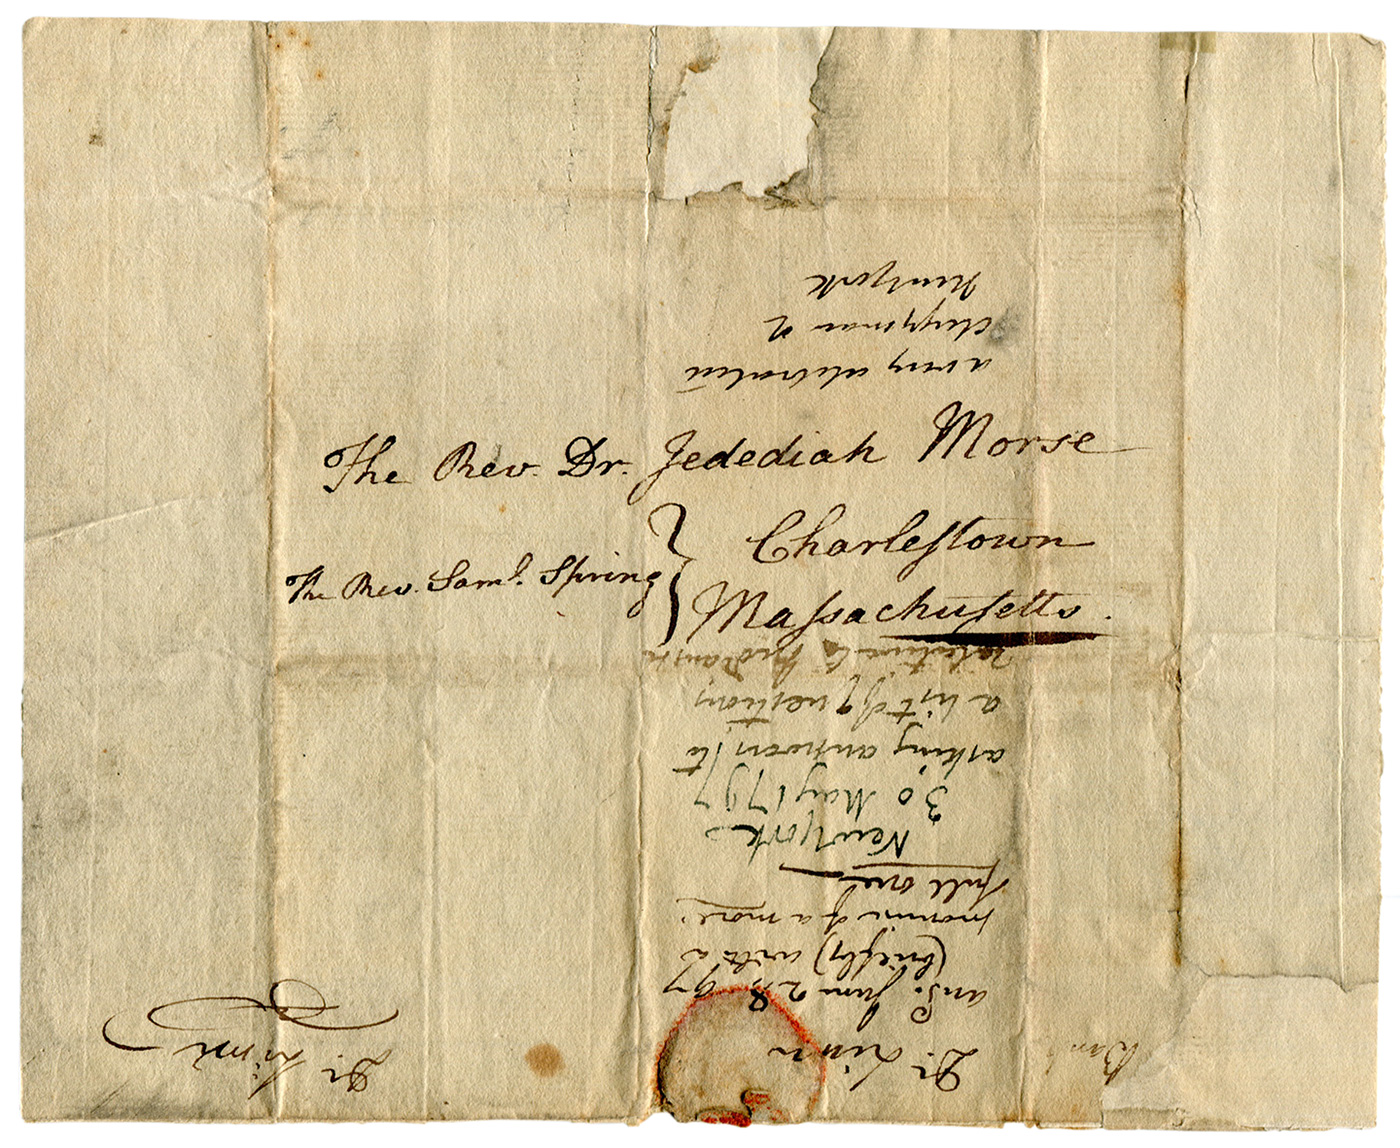 The Rev. Dr. Jedediah Morse
Charleſtown
The Rev. Saml. Spring }
Maſsachuſetts.
Dr. Linn
ans. June 97
(briefly) with a
promise of a more
full one
New York
30 May 1797
asking answers to
a list of questions
relative to
a very celebrated
clergyman
New York
Dr. Linn